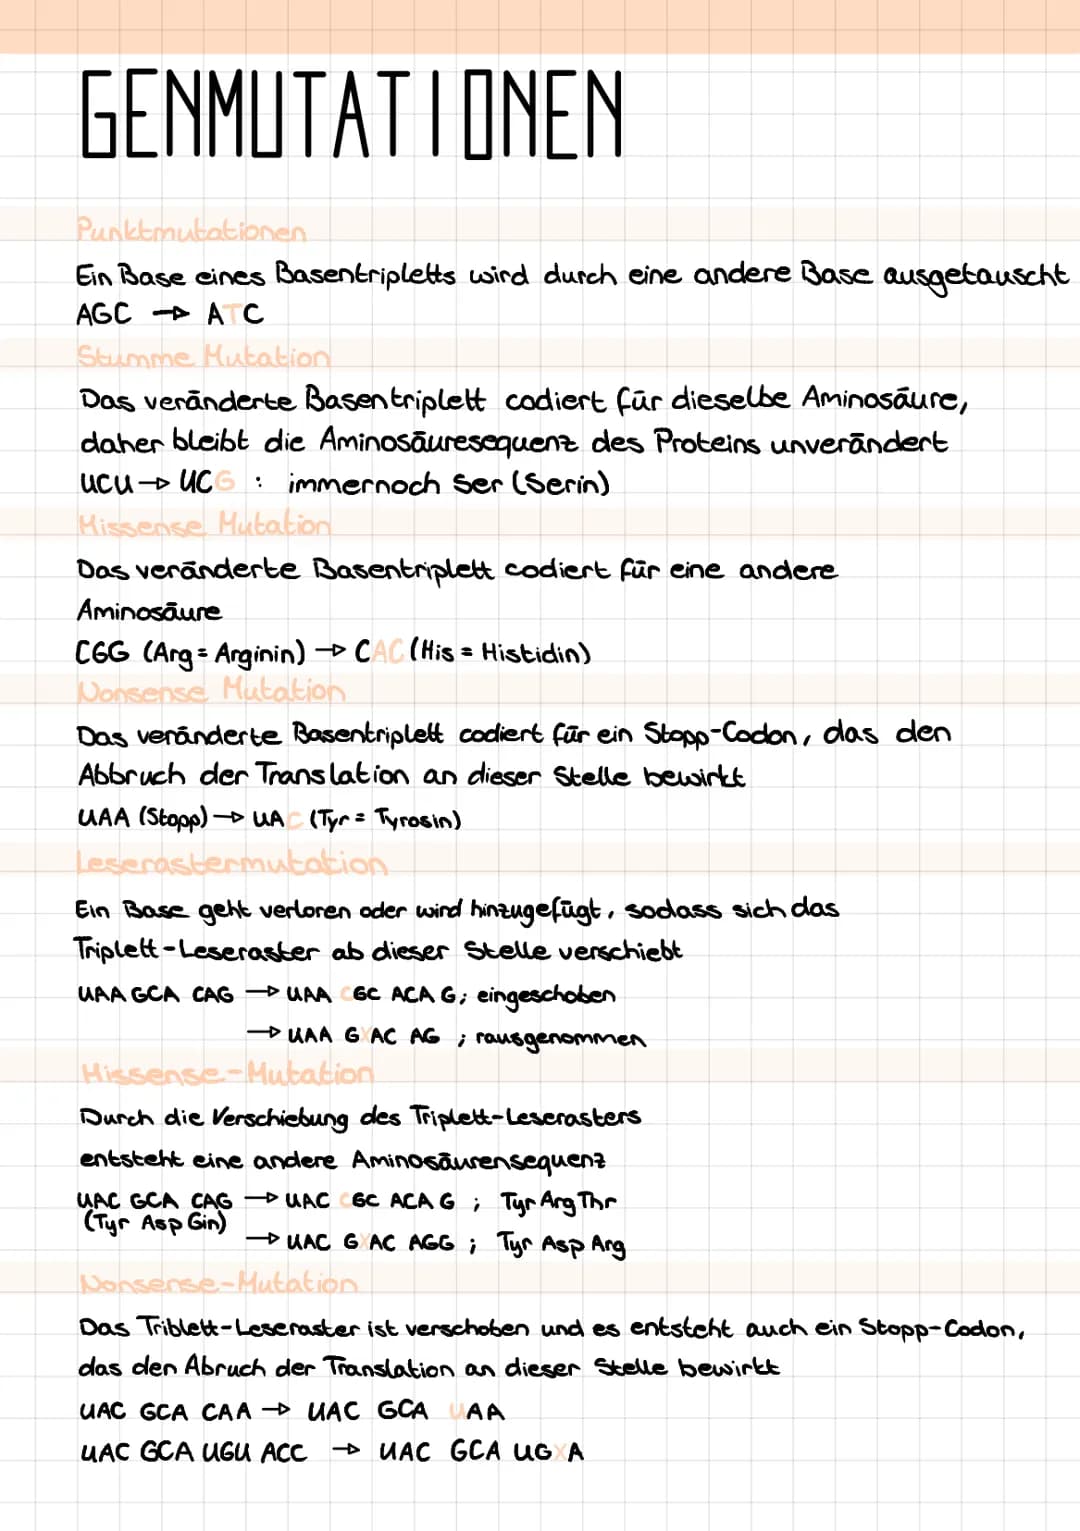 GENMUTATIONEN
Punktmutationen
Ein Base eines Basentripletts wird durch eine andere Base ausgetauscht
AGC → ATC
Stumme Mutation
Das veränderte Basentriplett codiert für dieselbe Aminosäure,
daher bleibt die Aminosäuresequenz des Proteins unverändert
UCU → UCG : immernoch Ser (Serin)
Missense Mutation
Das veränderte Basentriplett codiert für eine andere
Aminosäure
CGG (Arg = Arginin) → CAC (His = Histidin)
Nonsense Mutation
Das veränderte Basentriplett codiert für ein Stopp-Codon, das den
Abbruch der Translation an dieser Stelle bewirkt
UAA (Stopp) → UAC (Tyr = Tyrosin)
Leserastermutation
Ein Base geht verloren oder wird hinzugefügt, sodass sich das
Triplett-Leseraster ab dieser Stelle verschiebt
UAA GCA CAG → UAA CGC ACA G; eingeschoben
→ UAA GXAC AG ; rausgenommen
Missense-Mutation
Durch die Verschiebung des Triplett-Leserasters
entsteht eine andere Aminosäurensequenz
UAC GCA CAG → UAC CGC ACA G ; Tyr Arg Thr
(Tyr Asp Gin)
→ UAC GXAC AGG ; Tyr Asp Arg
Nonsense-Mutation
Das Triblett-Leseraster ist verschoben und es entsteht auch ein Stopp-Codon,
das den Abruch der Translation an dieser Stelle bewirkt
UAC GCA CAA → UAC GCA UAA
UAC GCA UGU ACC → UAC GCA UGXA